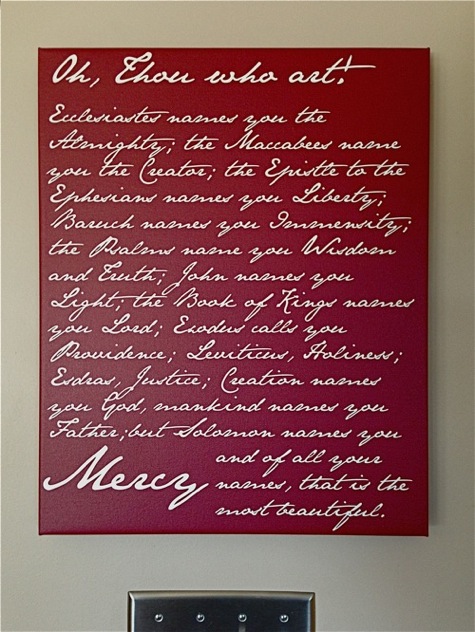 Oh, Thou who art!
Ecclesiastes names you the
Almighty; the Maccabees name
you the Creator; the Epistle to the
Ephesians names you Liberty;
Baruch names you Immensity;
the Psalms name you Wisdom
and Truth; John names you
Light; the Book of Kings names
you Lord; Exodus calls you
Providence; Leviticus, Holiness;
Esdras, Justice; Creation names
you God, mankind names you
Father;but Solomon names you
Mercy and of all your
names, that is the
most beautiful.